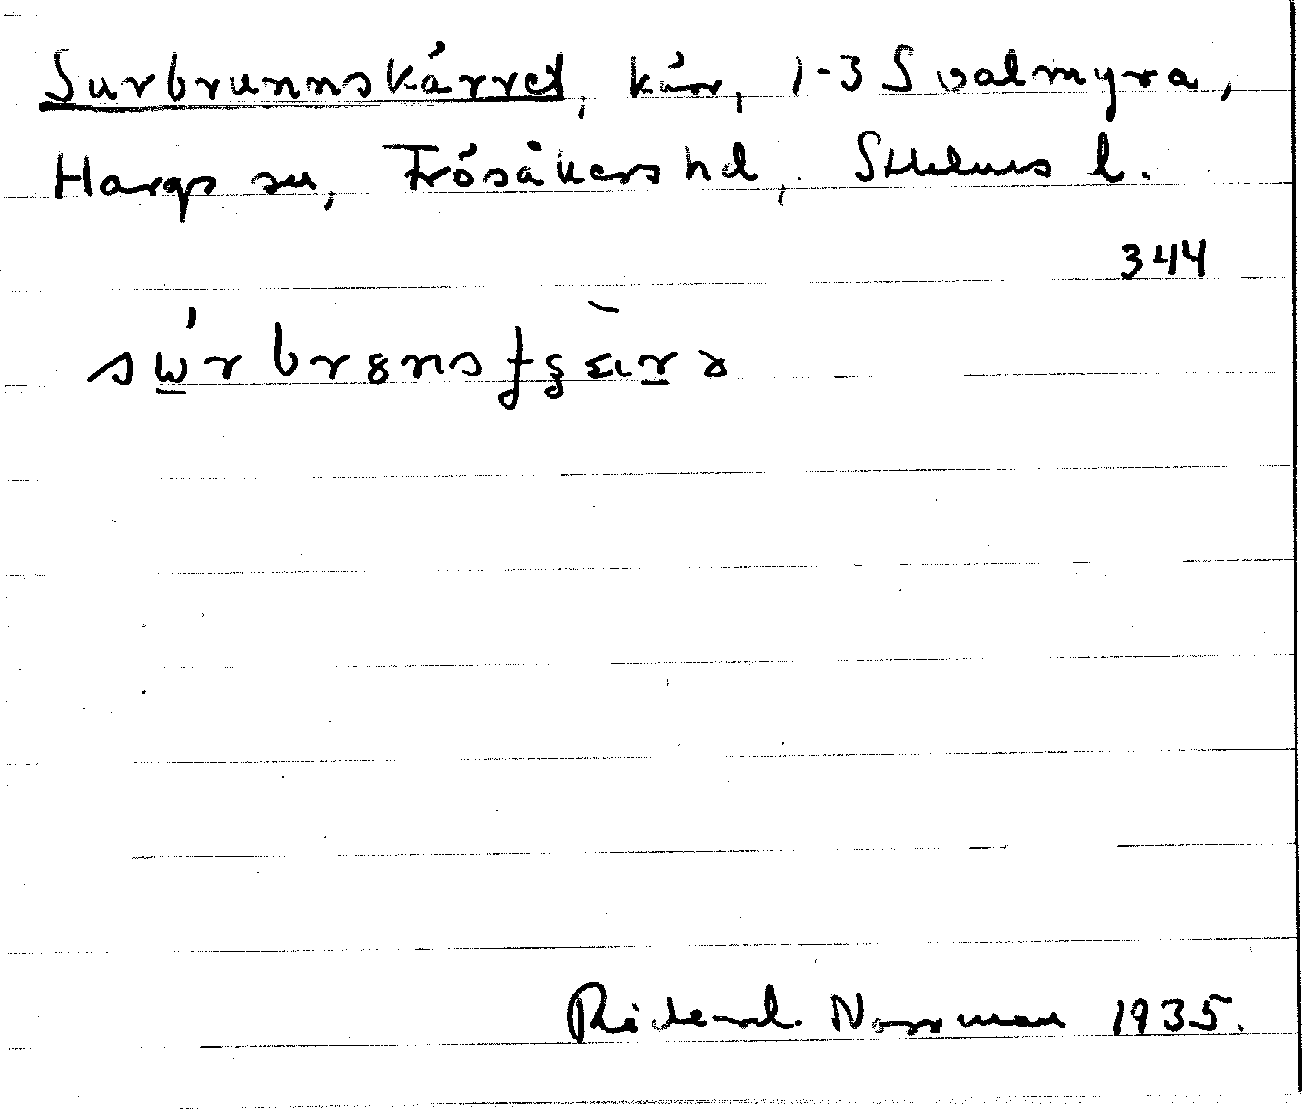 Surbrunnskärret, kärr, 1-3 Svalmyra,
Hargs sn, Frösåkers hd, Sthlms l.
344
Rickard Norrman 1935.